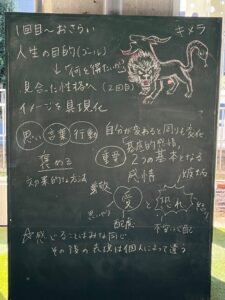 1回目〜おさらい
キメラ
人生の目的(ゴール)
↓「何を得たいか」
見合った性格へ(2回目)
イメージを具現化
思い 言葉 行動
自分が変わると周りも変化
褒める
効果的な方法
重要
「基底的感情」
2つの基本となる
感情
愛と恐れ
思いやり
配慮
☆感じることはみな同じ
その後の表現は個人によって違う